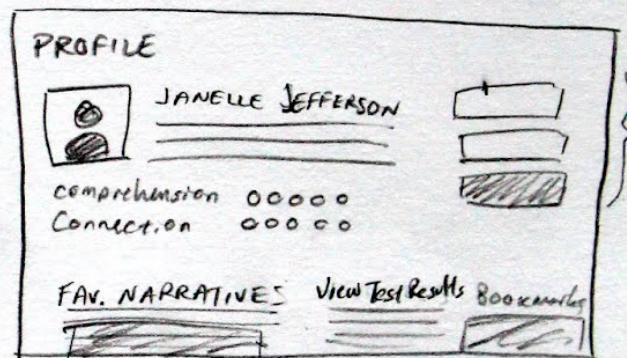 PROFILE
JANELLE JEFFERSON
comprehension
Connection
FAV. NARRATIVES View Test Results Bookmarks